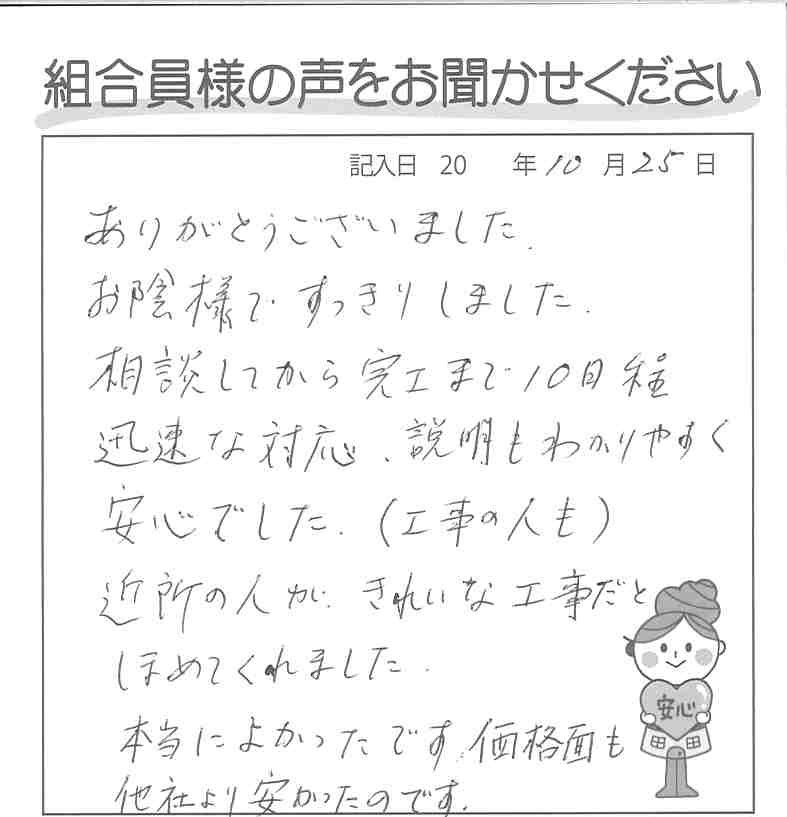 組合員様の声をお聞かせください
記入日 20 年10月25日
ありがとうございました.
お陰様で すっきりしました.
相談してから完工まで10日程
迅速な対応、説明もわかりやすく
安心でした.(工事の人も)
近所の人が、きれいな工事だと
ほめてくれました.
本当によかったです.価格面も
他社より安かったのです.
安心